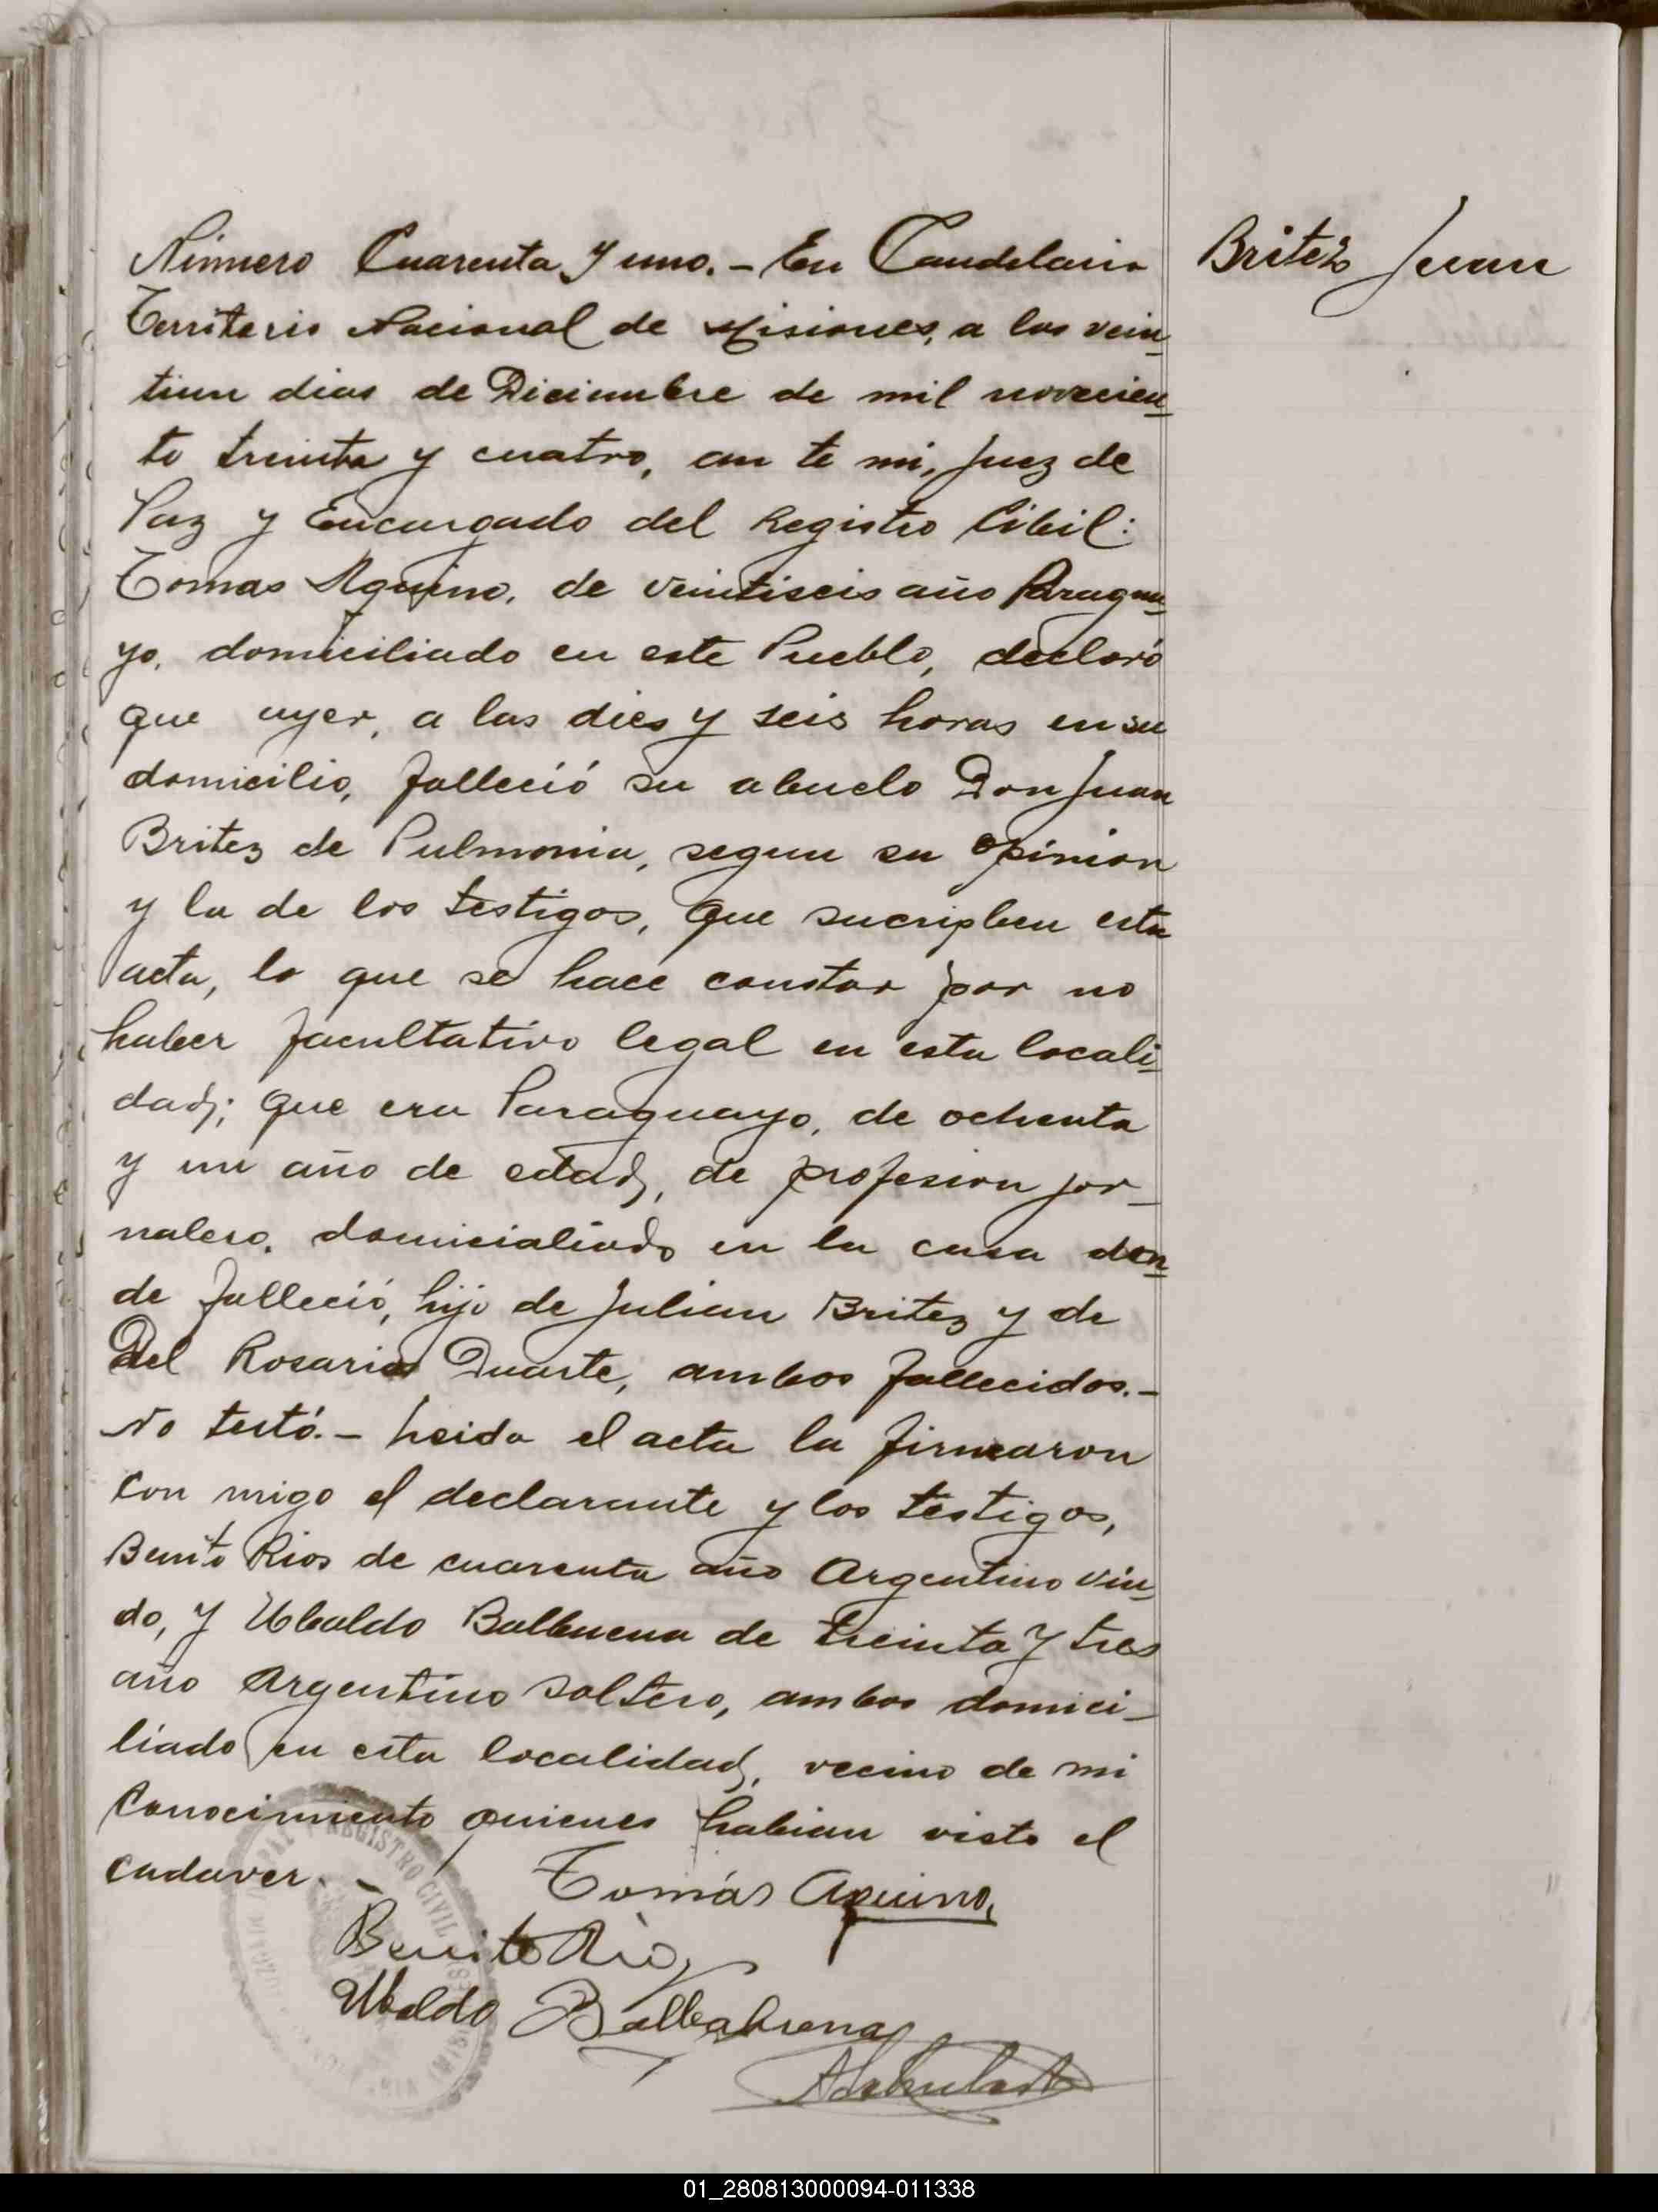 Número Cuarenta y uno.- En Candelaria
Britez Juan
Territorio Nacional de Misiones, a los vein-
tiun dias de Diciembre de mil novecien-
to treinta y cuatro, an te mi, Juez de
Paz y Encargado del Registro Cibil:
Tomas Aquino, de veintiseis año Paragua-
yo, domiciliado en este Pueblo, declaró
que ayer, a las dies y seis horas en su
domicilio, falleció su abuelo Don Juan
Britez de Pulmonia, segun su opinion
y la de los testigos, que sucripben esta
acta, lo que se hace constar por no
haber facultativo legal en esta locali-
dad; que era Paraguayo, de ochenta
y un año de edad, de profesion jor-
nalero, domicialiado en la casa don-
de falleció, hijo de Julian Britez y de
Del Rosario Duarte, ambos fallecidos.-
No testó.- Leida el acta la firmaron
con migo el declarante y los testigos,
Benito Rios de cuarenta año Argentino viu-
do, y Ubaldo Balbuena de treinta y tres
año Argentino soltero, ambos domici-
liado en esta localidad, vecino de mi
Conocimiento quienes habian visto el
cadaver.-
Tomás Aquino,
Benito Rio
Ubaldo
REGISTRO CIVIL
01_280813000094-011338